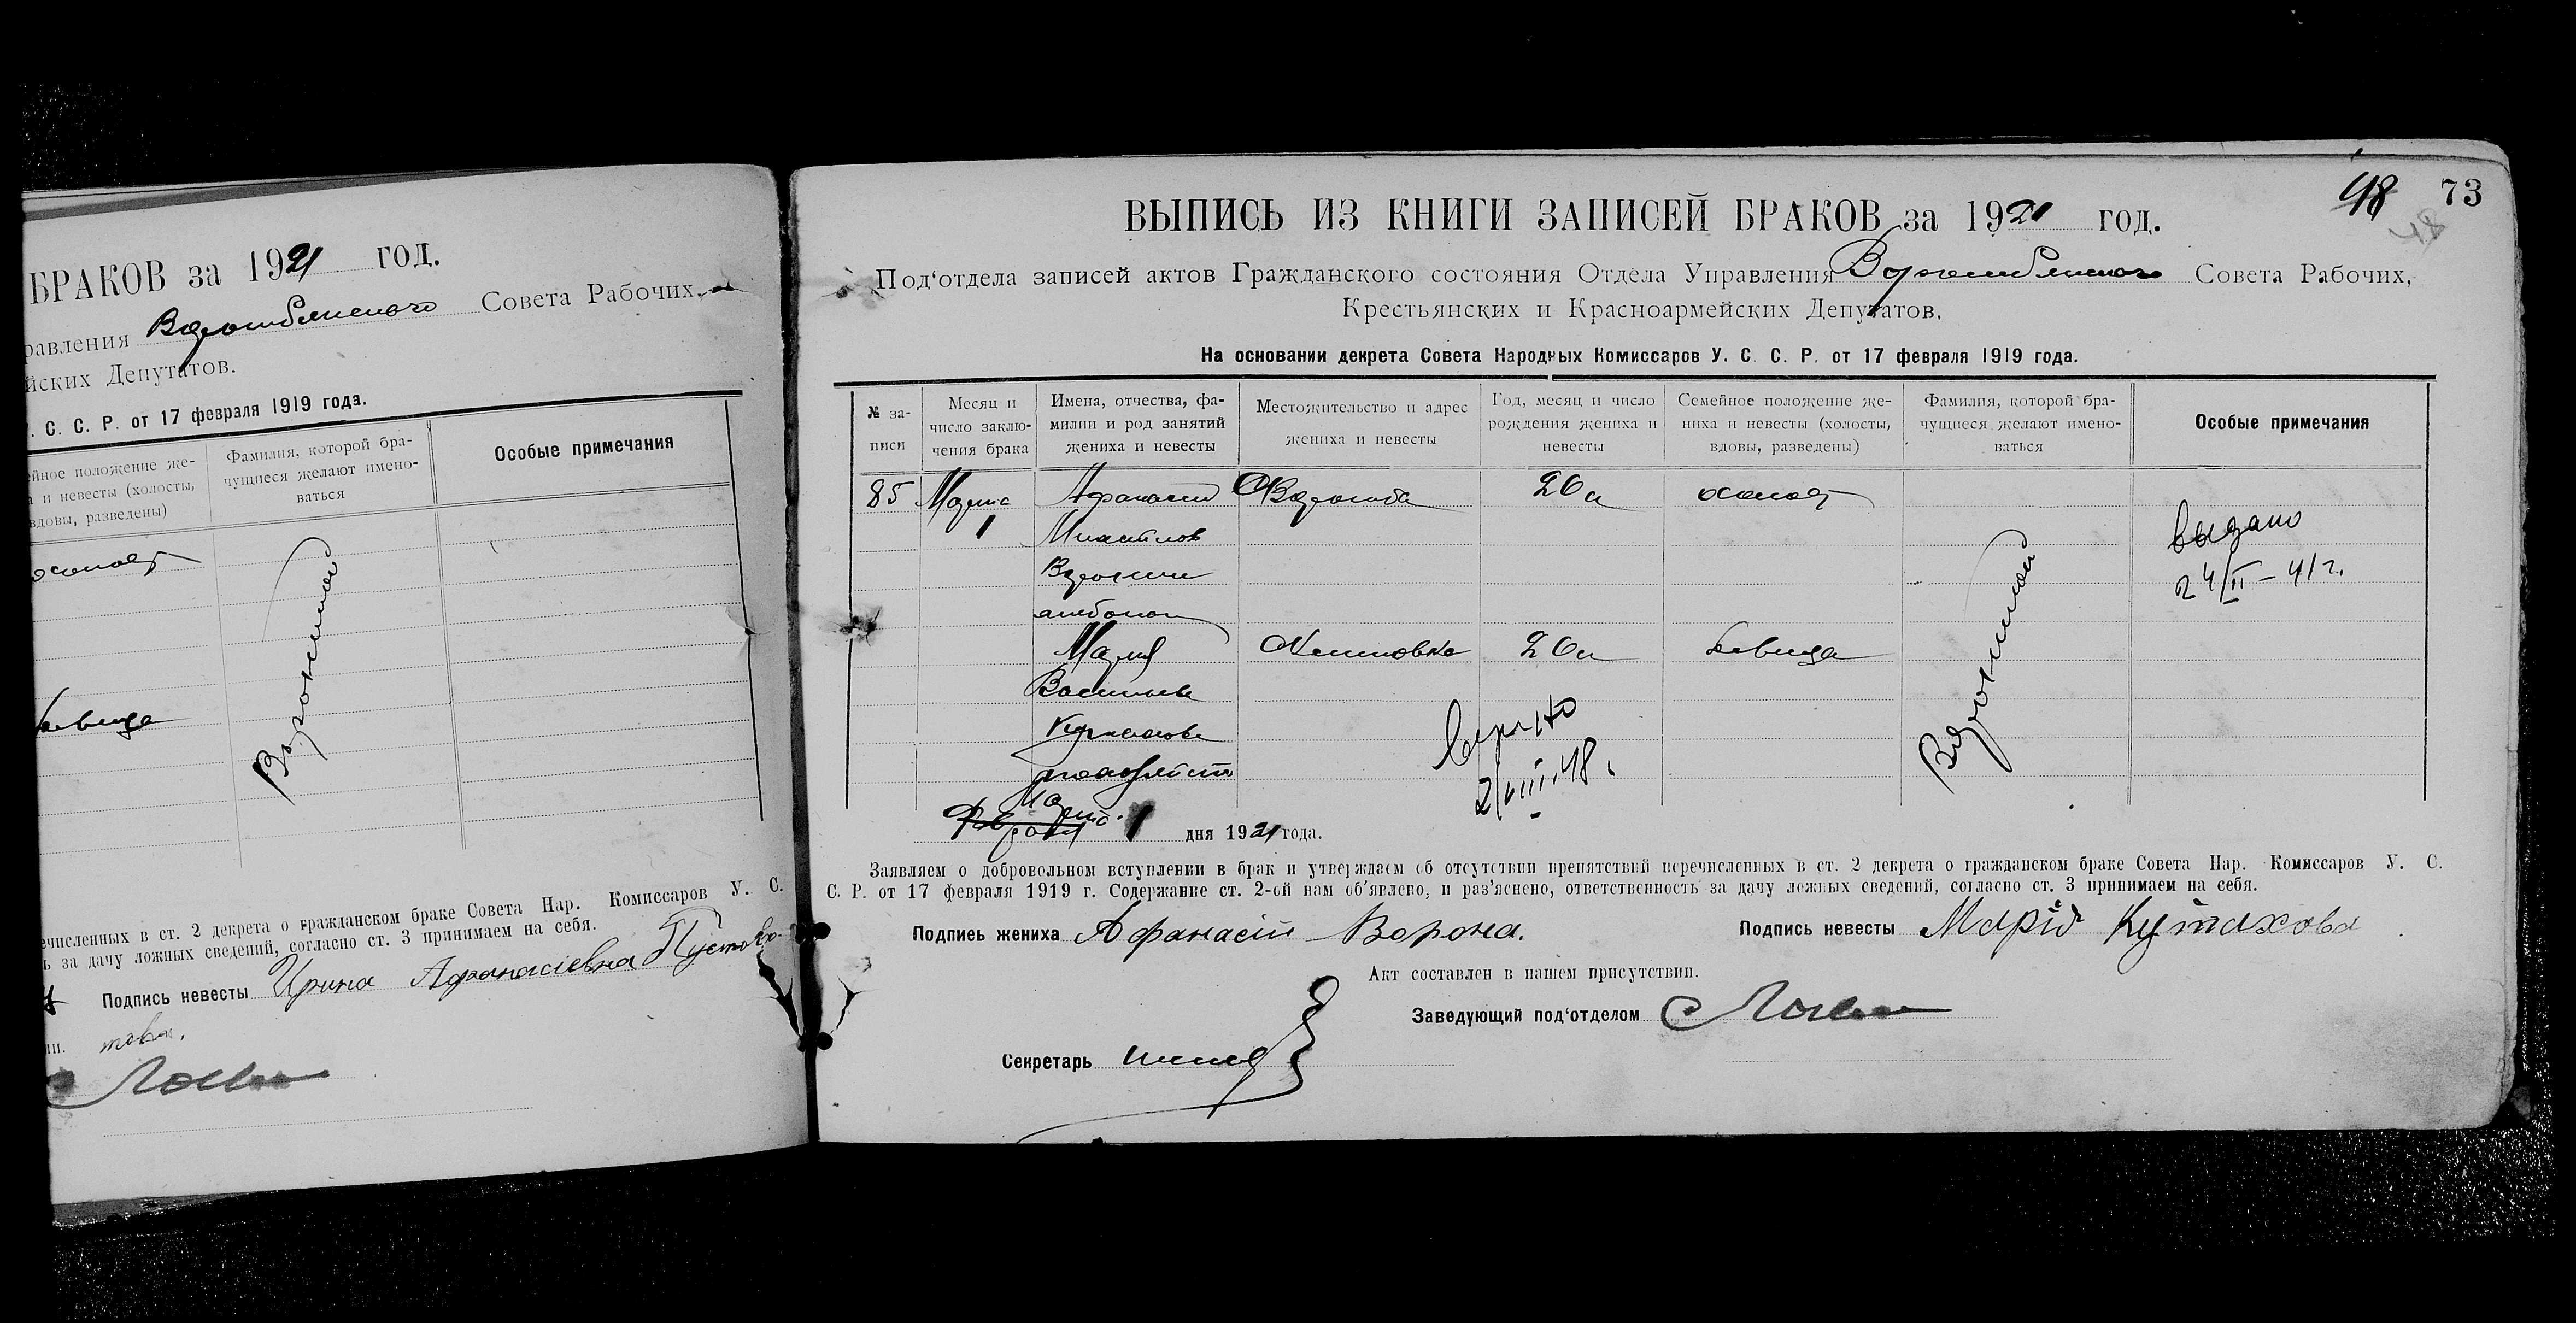 БРАКОВ за 1921 год.
равления Ворожбянского Совета Рабочих,
йских Депутатов.
. С. С. Р. от 17 февраля 1919 года.
ейное положение же-
а и невесты (холосты,
вдовы, разведены)
Фамилия, которой бра-
чущиеся желают имено-
ваться
Особые примечания
холост
девица
ечисленных в ст. 2 декрета о гражданском браке Совета Нар. Комиссаров У. С.
ь за дачу ложных сведений, согласно ст. 3 принимаем на себя.
Подпись невесты Ирина Афанасіевна Пустово-
ии. това.
48 73
48
ВЫПИСЬ ИЗ КНИГИ ЗАПИСЕЙ БРАКОВ за 1921 год.
Под‘отдела записей актов Гражданского состояния Отдела Управления Ворожбянского Совета Рабочих,
Крестьянских и Красноармейских Депутатов.
На основании декрета Совета Народных Комиссаров У. С. С. Р. от 17 февраля 1919 года.
№ за-
писи
Месяц и
число заклю-
чения брака
Имена, отчества, фа-
милии и род занятий
жениха и невесты
Местожительство и адрес
жениха и невесты
Год, месяц и число
рождения жениха и
невесты
Семейное положение же-
ниха и невесты (холосты,
вдовы, разведены)
Фамилия, которой бра-
чущиеся желают имено-
ваться
Особые примечания
85 Марта Афанасий Ворожба 20 л холост
1
выдано
24/II – 41 г.
Мария 20 л девица
Васильев
Кутахова
верно
2/VIII.48.
Марта
Февраля 1 дня 1921 года.
Заявляем о добровольном вступлении в брак и утверждаем об отсутствии препятствий перечисленных в ст. 2 декрета о гражданском браке Совета Нар. Комиссаров У. С.
С. Р. от 17 февраля 1919 г. Содержание ст. 2-ой нам об’явлено, и раз’яснено, ответственность за дачу ложных сведений, согласно ст. 3 принимаем на себя.
Подпись жениха Афанасій Ворона.
Подпись невесты Марія Кутахова
Акт составлен в нашем присутствии.
Заведующий под‘отделом
Секретарь